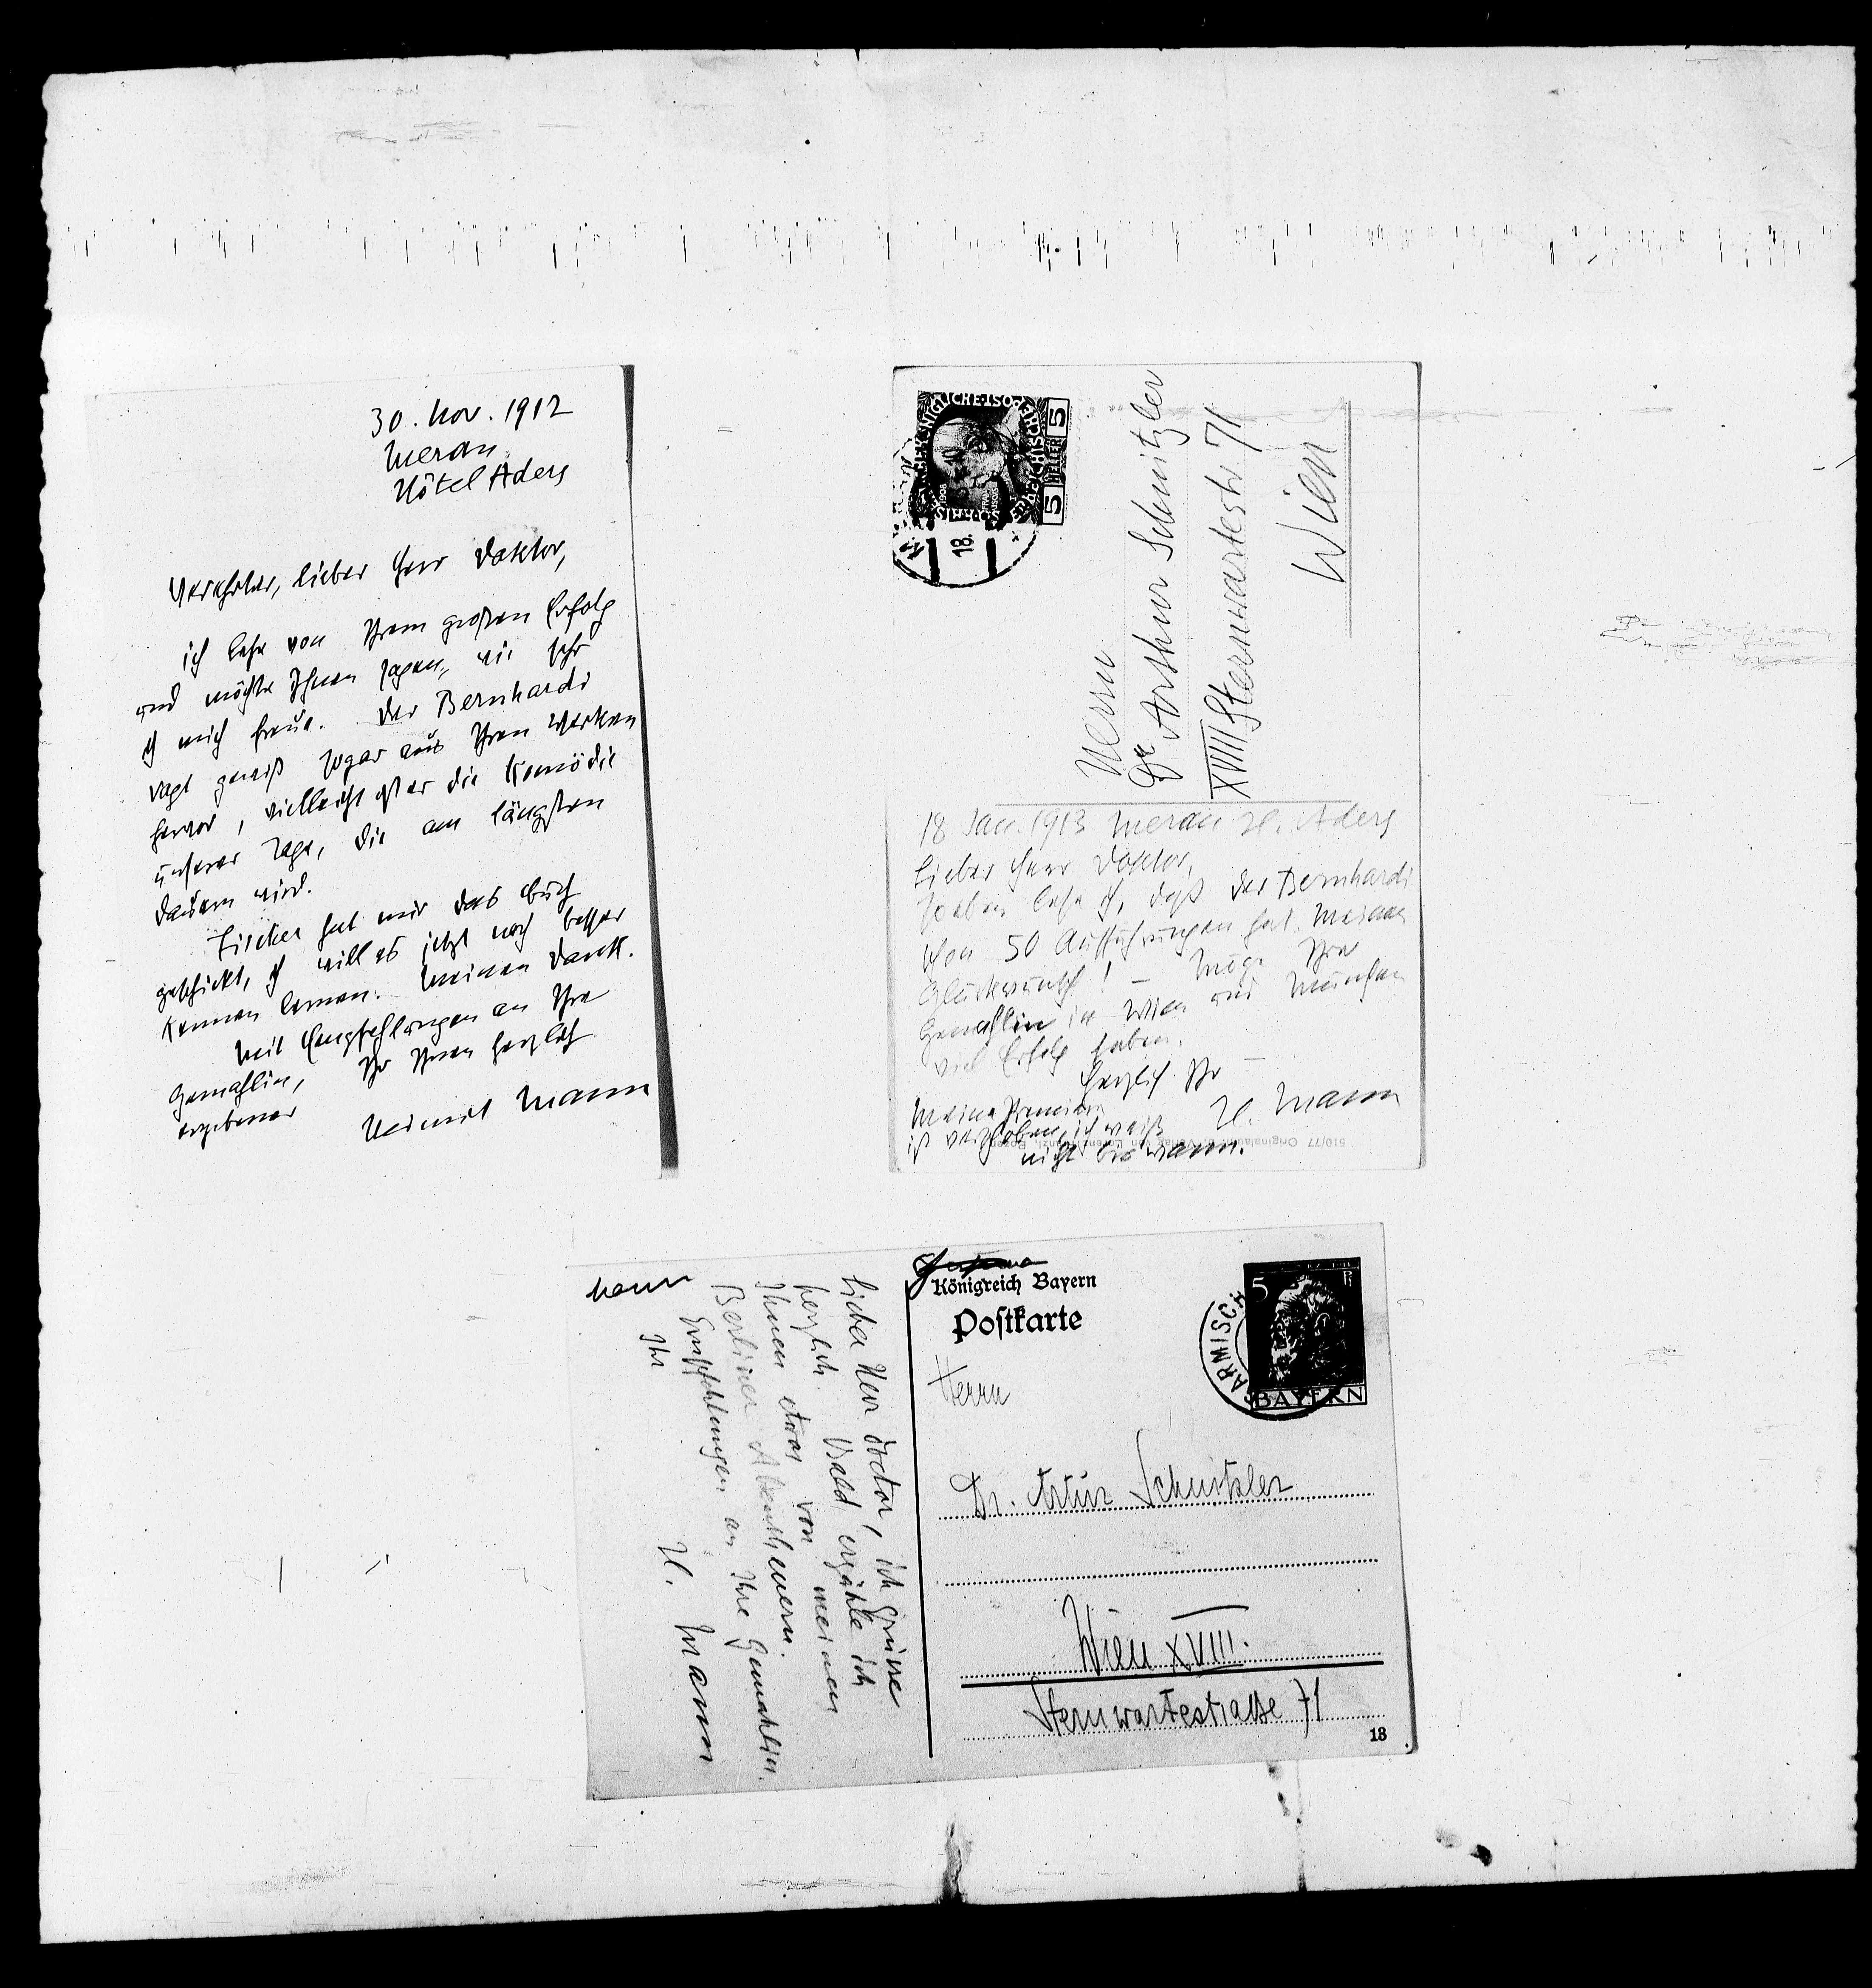 30. Nov. 1912
Meran
Hôtel Aders
Verehrter, lieber Herr Doktor,
ich lese von Ihrem großen Erfolg
und möchte Ihnen sagen, wie sehr
ich mich freue. Der Bernhardi
ragt gewiß sogar aus Ihren Werken
hervor, vielleicht ist er die Komödie
unserer Tage, die am längsten
dauern wird.
Fischer hat mir das Buch
geschickt, ich will es jetzt noch besser
kennen lernen. Meinen Dank.
Mit Empfehlungen an Ihre
Gemahlin, Ihr Ihnen herzlich
ergebener
Heinrich Mann
5 HELLER 5
1908
18.
Herrn
Dr Arthur Schnitzler
XVIII Sternwartestr 71
Wien
18 Jan. 1913 Meran H. Aders
Lieber Herr Doktor,
soeben lese ich, daß der Bernhardi
schon 50 Aufführungen hat. Meinen
Glückwunsch! – Möge Ihre
Gemahlin in Wien und München
viel Erfolg haben.
Herzlich Ihr
H. Mann
Meine Premiere
ist verschoben, ich weiß
nicht bis wann.
510/77 Originalaufnahme u. Verlag von Lorenz Fränzl, Bozen
Königreich Bayern
Postkarte
5 Pf
BAYERN
GARMISCH
Herrn
Dr. Artur Schnitzler
Wien XVIII.
Sternwartestraße 71
13
Lieber Herr Doctor, ich grüsse
herzlich. Bald erzähle ich
Ihnen etwas von meinen
Berliner Abentheuern.
Empfehlungen an Ihre Gemahlin.
Ihr
H. Mann
Mann